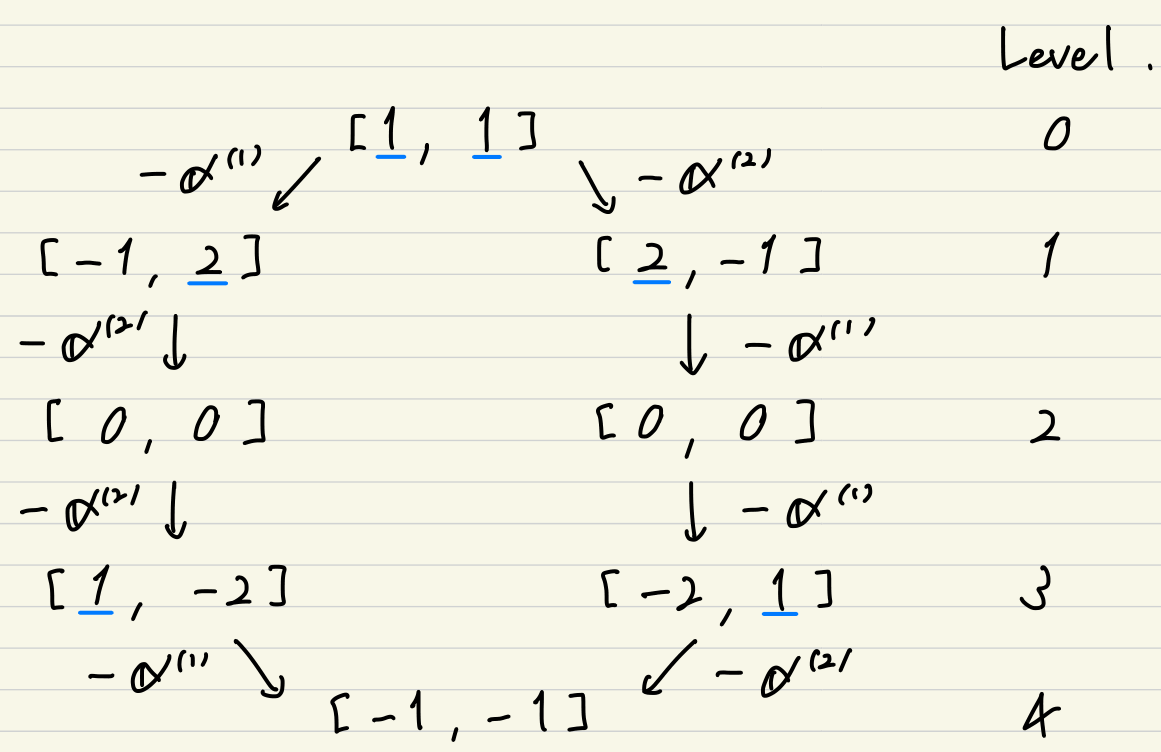 Level .
[ 1 , 1 ] 0
- α⁽¹⁾ - α⁽²⁾
[ - 1 , 2 ] [ 2 , - 1 ] 1
- α⁽²⁾ - α⁽¹⁾
[ 0 , 0 ] [ 0 , 0 ] 2
- α⁽²⁾ - α⁽¹⁾
[ 1 , - 2 ] [ - 2 , 1 ] 3
- α⁽¹⁾ - α⁽²⁾
[ - 1 , - 1 ] 4